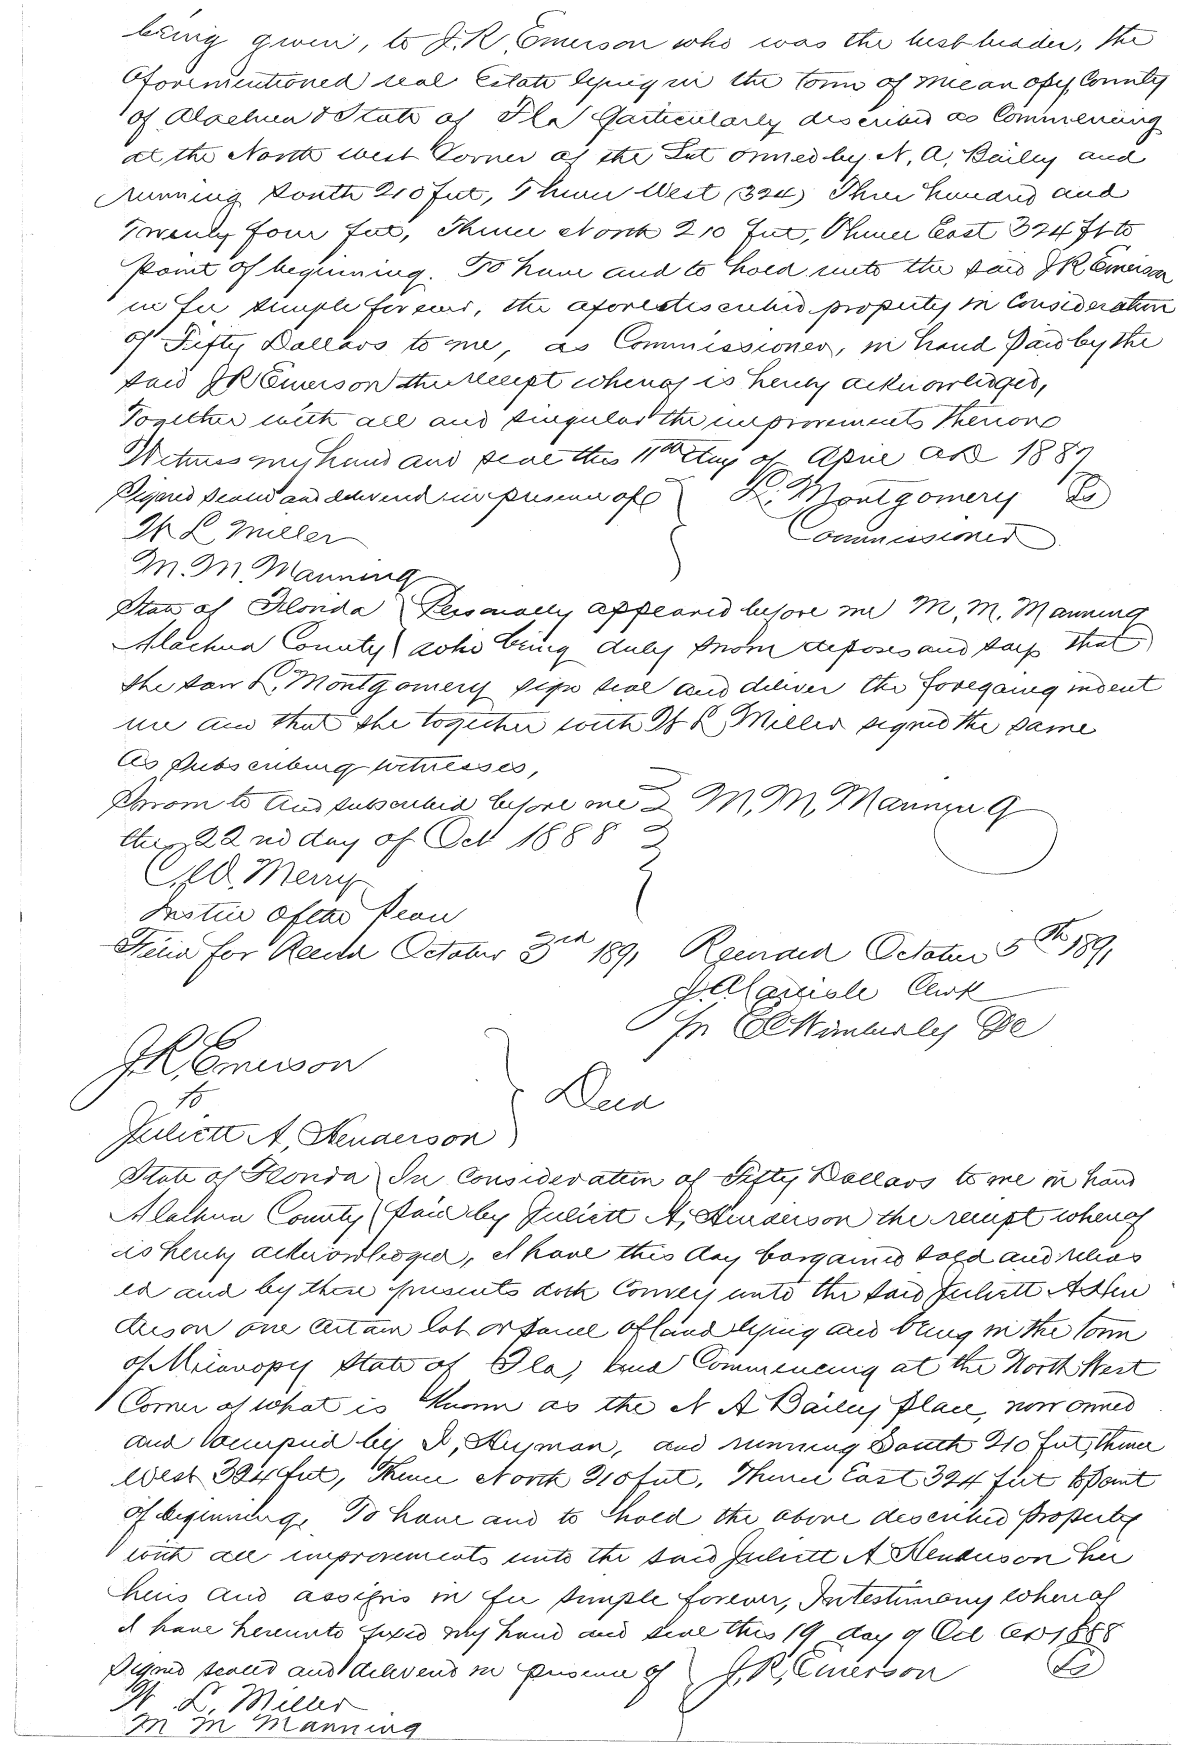 being given, to J.R. Emerson who was the best bidder, the
aforementioned real Estate lying in the town of Micanopy County
of Alachua & State of Fla particularly described as Commencing
at the North west Corner of the Lot owned by N. A. Bailey and
running South 210 feet, Thence West (324) Three hundred and
Twenty four feet, Thence North 210 feet, Thence East 324 ft to
point of beginning. To have and to hold unto the said J R Emerson
in fee simple forever, the aforedescribed property in Consideration
of Fifty Dollars to me, as Commissioner, in hand Paid by the
said J R Emerson the receipt whereof is hereby acknowledged,
Together with all and singular the improvements thereon
Witness my hand and seal this 11th day of April AD 1887
Signed sealed and delivered in presence of L. Montgomery LS
W L Miller Commissioner
M. M. Manning
State of Florida Personally appeared before me M. M. Manning
Alachua County who being duly sworn deposes and says that
she saw L. Montgomery sign seal and deliver the foregoing indent
ure and that she together with W L Miller signed the same
as subscribing witnesses,
Sworn to and subscribed before me M. M. Manning
this 22nd day of Oct 1888
Merry
Justice of the Peace
Filed for Record October 3rd 1891 Recorded October 5th 1891
J.A. Carlisle Clerk
Pr Wimberley DC
J.R. Emerson
to Deed
Juliett A. Henderson
State of Florida In Consideration of Fifty Dollars to me in hand
Alachua County Paid by Juliett A. Henderson the receipt whereof
is hereby acknowledged, I have this day bargained sold and releas
ed and by these presents doth Convey unto the said Juliett A Hen
derson one certain lot or parcel of land lying and being in the town
of Micanopy State of Fla, and Commencing at the North West
Corner of what is Known as the N A Bailey place, now owned
and occupied by Hyman, and running South 210 feet, thence
West 324 feet, Thence North 210 feet, Thence East 324 feet to point
of beginning. To have and to hold the above described property
with all improvements unto the said Juliett A Henderson her
heirs and assigns in fee simple forever, In testimony whereof
I have hereunto fixed my hand and seal this 19 day of Oct AD 1888
Signed sealed and delivered in presence of J. R. Emerson LS
W. L. Miller
M M Manning